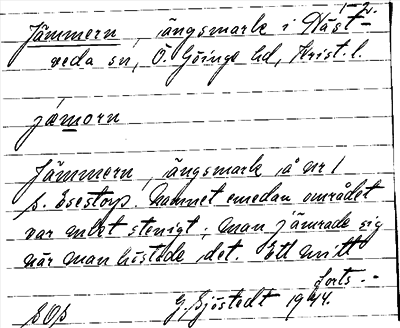 1-2.
Jämmern, ängsmark i Näst-
veda sn, Ö. Göinge hd, Krist. l.
jämorn
Jämmern, ängsmark å nr 1
s. Esestorp. Namnet emedan området
var mket stenigt; man jämrade sig
när man höstade det. Ett mitt
forts. -
G. Sjöstedt 1944.